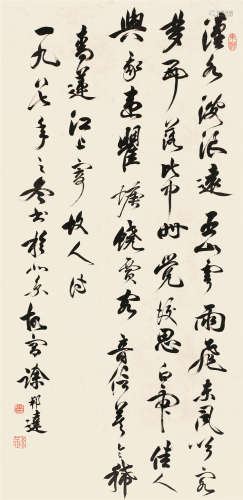 漢水波浪遠巫山雲雨飛東風吹客
夢西落此中時覺後思白帝佳人
與我違瞿塘饒賈客音信莫令稀
青蓮江上寄故人詩
一九八七年之冬書於北京故宫徐邦達